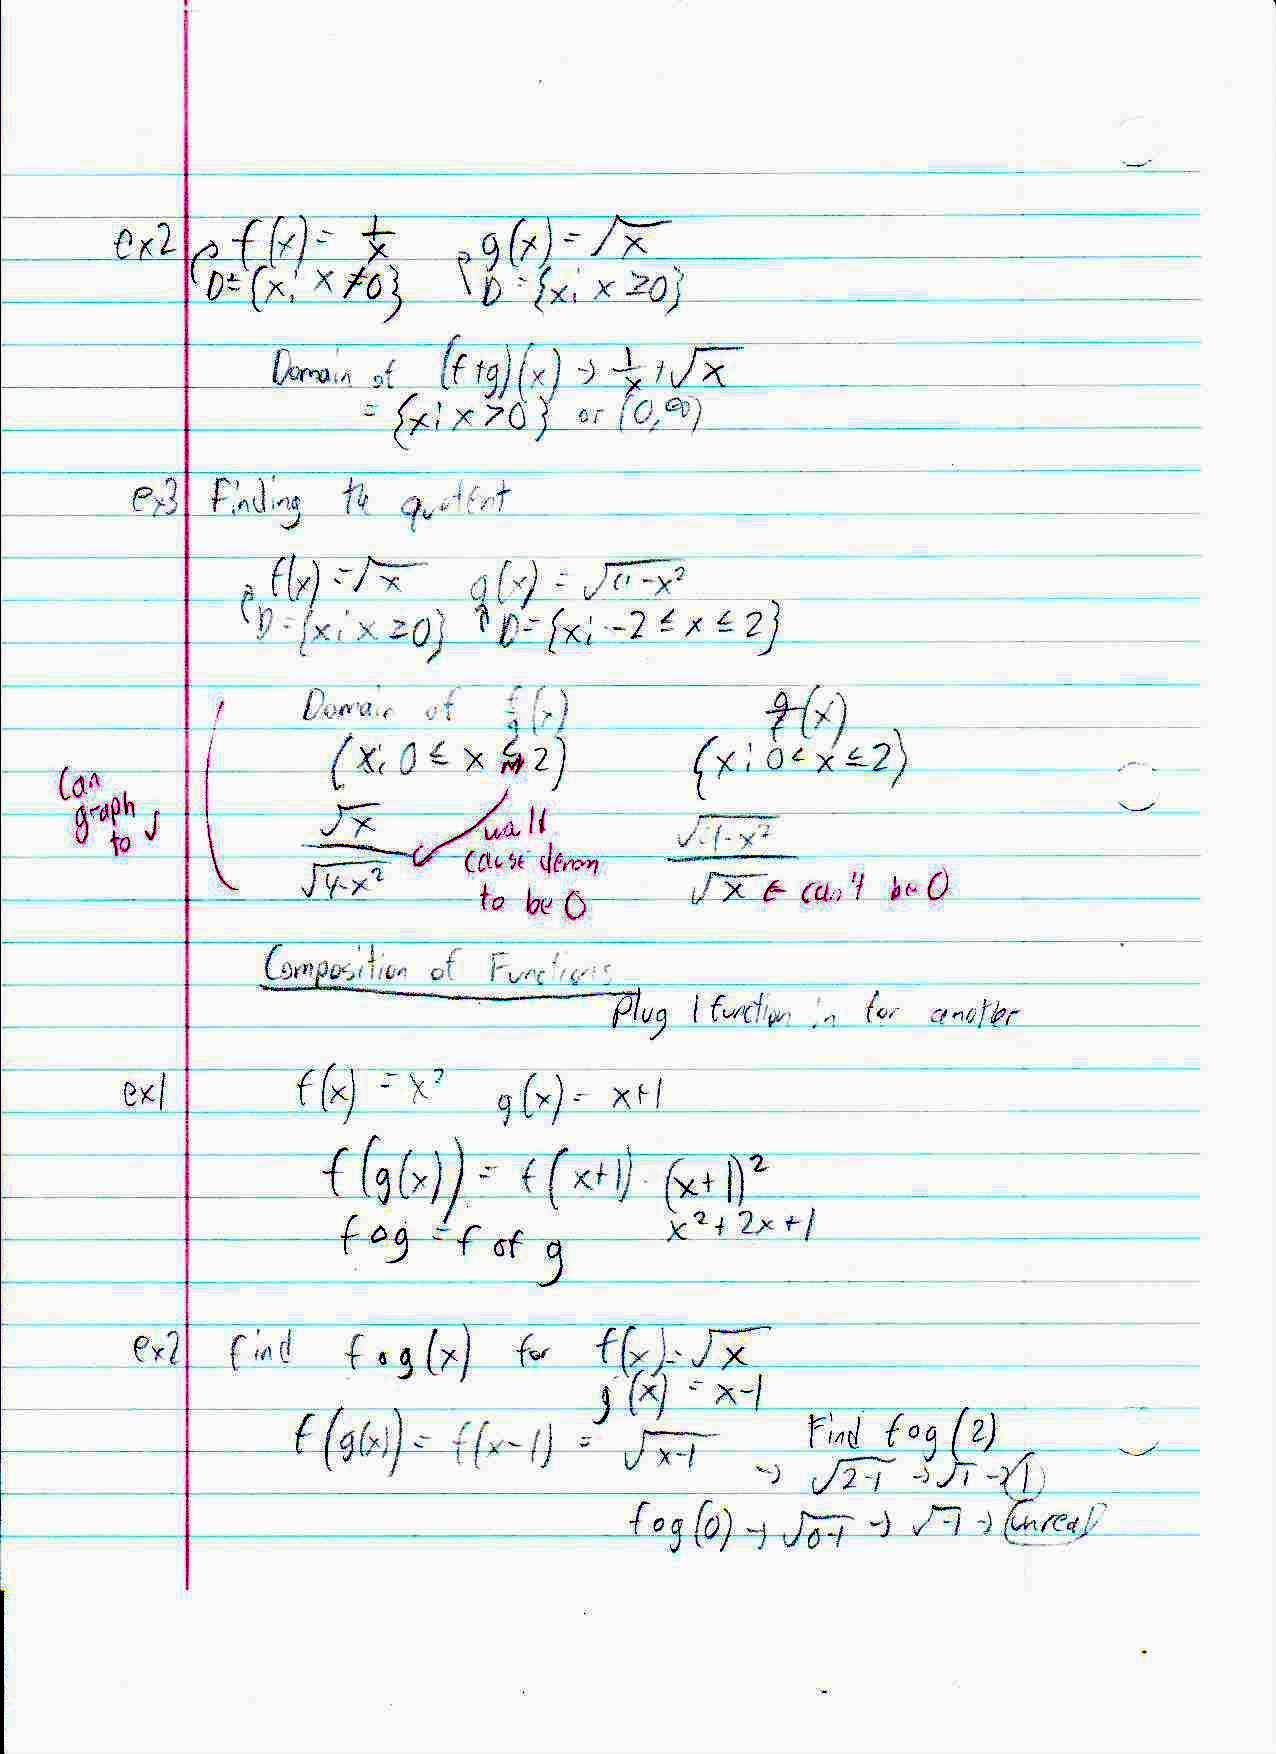 ex2 f(x) = 1/x g(x) = √x
D = {x; x ≠ 0} D = {x; x ≥ 0}
Domain of (f+g)(x) → 1/x + √x
= {x; x > 0} or (0, ∞)
ex3 Finding the quotent
f(x) = √x g(x) = √4-x²
D = {x; x ≥ 0} D = {x; -2 ≤ x ≤ 2}
Domain of f/g(x) g/f(x)
(x; 0 ≤ x < 2) {x; 0 < x ≤ 2}
Can graph to √
√x / √4-x² would cause denom to be 0 √4-x² / √x ← can't be 0
Composition of Functions
Plug 1 function in for another
ex1 f(x) = x² g(x) = x+1
f(g(x)) = f(x+1) = (x+1)²
fog = f of g x² + 2x + 1
ex2 find fog(x) for f(x) = √x
g(x) = x-1
f(g(x)) = f(x-1) = √x-1 Find fog(2)
→ √2-1 → √1 → 1
fog(0) → √0-1 → √-1 → unreal